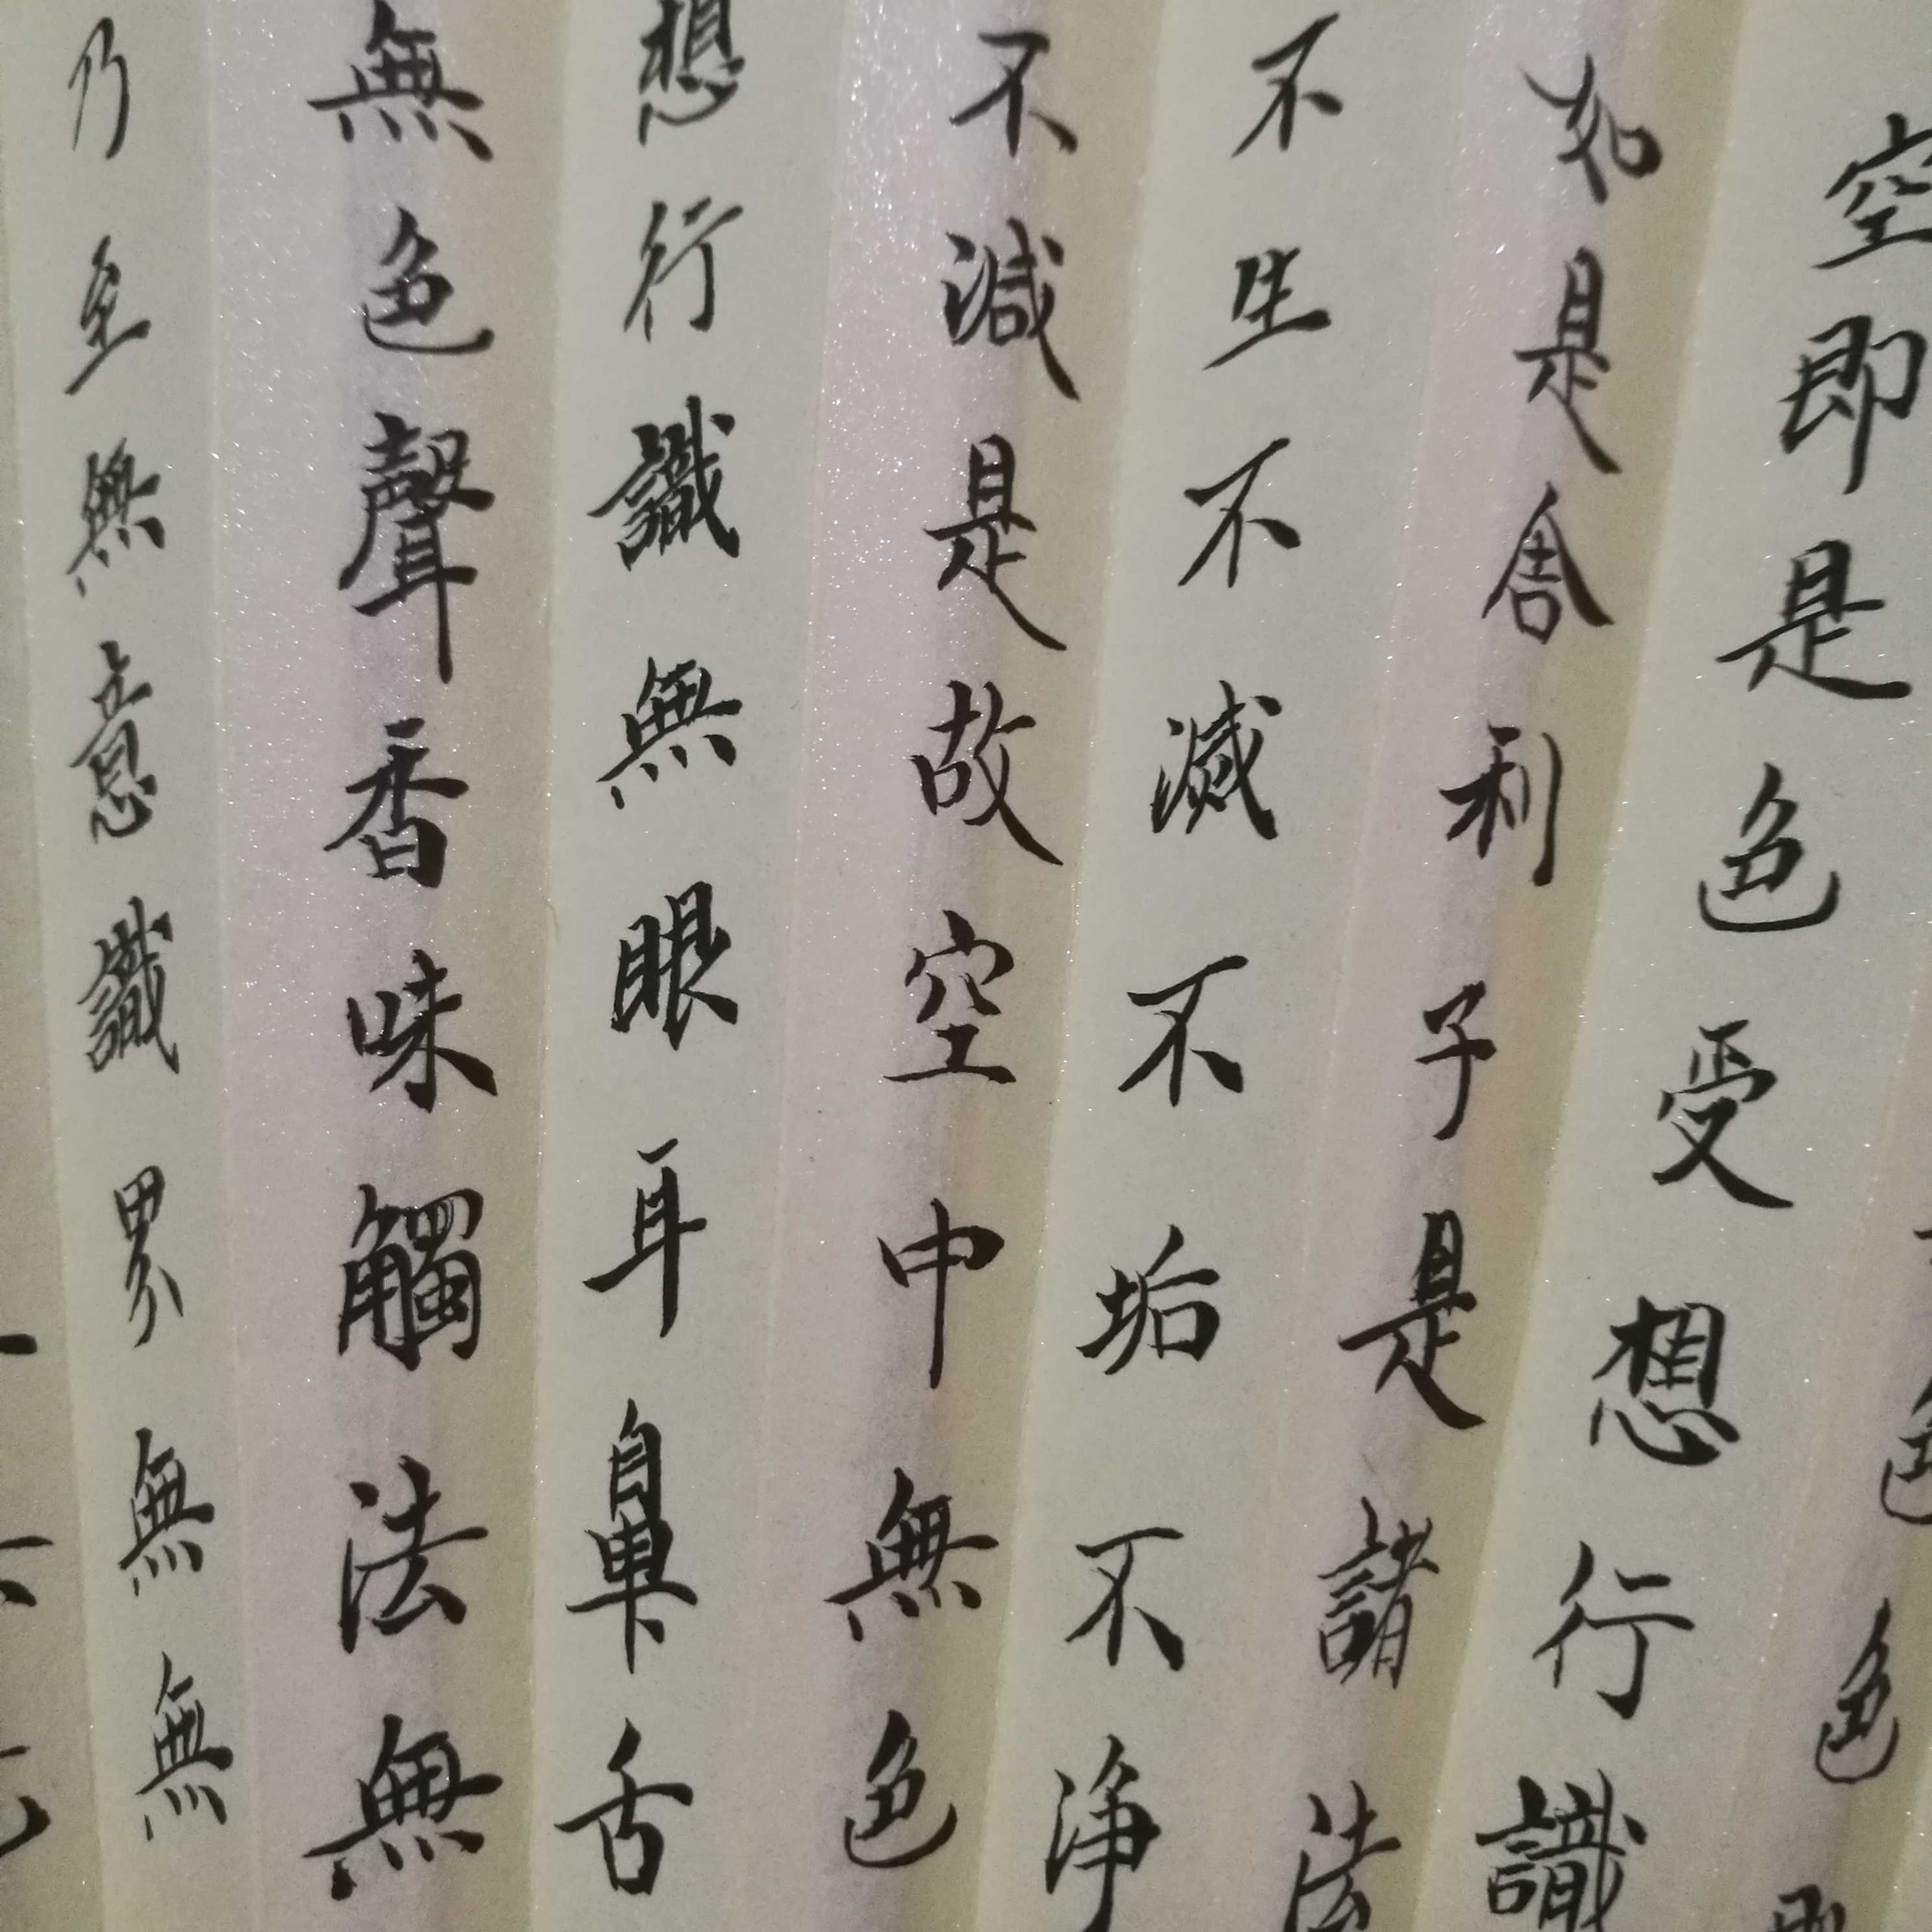 色色
空即是色受想行識
如是舍利子是諸法
不生不滅不垢不净
不減是故空中無色
想行識無眼耳鼻舌
無色聲香味觸法無
乃至無意識界無無